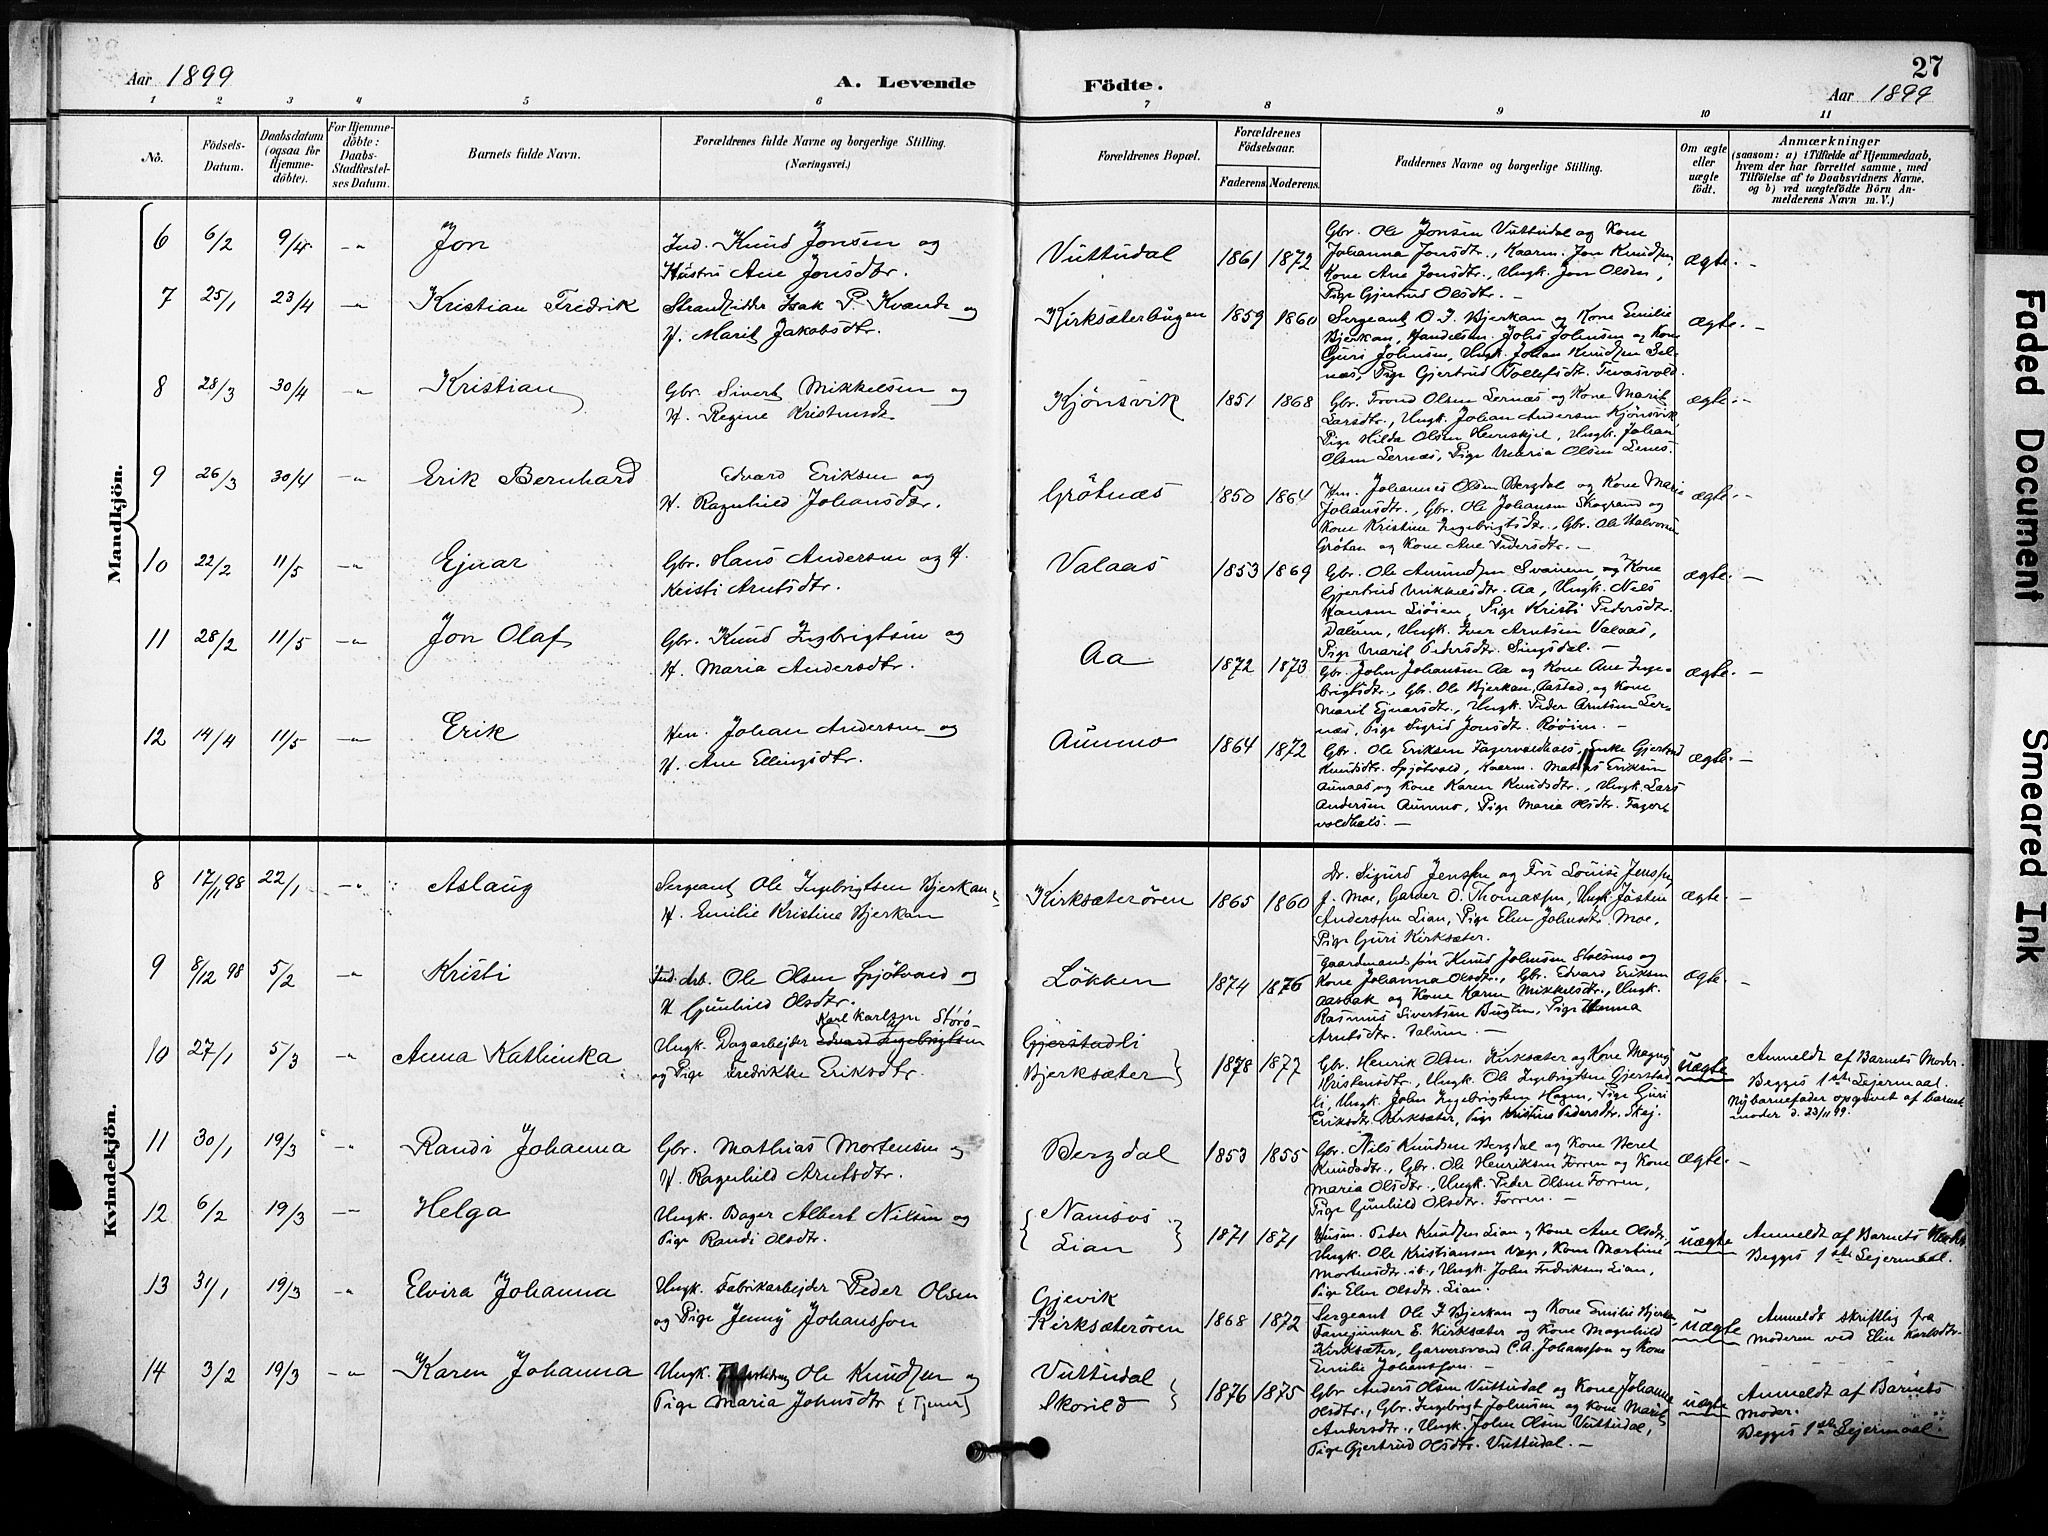 Aar 1899
A. Levende
Födte.
27
Aar 1899
1 2 3 4 5 6 7 8 9 10 11
No.
Födsels-Datum.
Daabsdatum (ogsaa for Hjemme-döbte).
For Hjemme-döbte: Daabs-Stadfæstel-ses Datum.
Barnets fulde Navn.
Forældrenes fulde Navne og borgerlige Stilling. (Næringsvei.)
Forældrenes Bopæl.
Forældrenes Födselsaar.
Faderens. Moderens.
Faddernes Navne og borgerlige Stilling.
Om ægte eller uægte födt.
Anmærkninger
(saasom: a) i Tilfælde af Hjemmedaab, hvem der har forrettet samme, med Tilföielse af to Daabsvidners Navne. og b) ved uægtefödte Börn An-melderens Navn m. V.)
Mandkjön.
6 6/2 9/4 -"- Jon
Ind. Knud Jonsen og
Hustru Ane Jonsdtr.
Vuttudal 1861 1872
Gbr. Ole Jonsen Vuttudal og Kone
Johanna Jonsdtr., Kaarm. Jon Knudsen,
Kone Ane Jonsdtr., Ungk. Jon Olsen,
Pige Gjertrud Olsdtr. —
ægte. —
7 25/1 23/4 -"- Kristian Fredrik
Strandsidder Isak P. Kvande og
H. Marit Jakobsdtr.
Kirksæterbugen 1859 1860
Sergeant O. I. Bjerkan og Kone Emilie
Bjerkan, Handelsm. Johs Johnsen og Kone
Guri Johnsen, Ungk. Johan Knudsen Sel-
næs, Pige Gjertrud Tollefsdt.
ægte. —
8 28/3 30/4 -"- Kristian
Gbr. Sivert Mikkelsen og
H. Regine Kristensdt
Kjönsvik 1851 1868
Gbr. Trond Olsen Sernæs og Kone Marit
Larsdtr., Ungk. Johan Andersen Kjönsvik,
Pige Hilda Olsen Hevnskjel, Ungk. Johan
Olsen Lernæs, Pige Maria Olsen
ægte. —
9 26/3 30/4 -"- Erik Bernhard
Edvard Eriksen og
H. Ragnhild Johansdtr.
Grötnæs 1850 1864
Hm. Johannes Olsen Bergdal og Kone Marie
Johansdtr., Gbr. Ole Johansen Skogrand og
Kone Kristine Ingebrigtsdtr., Gbr. Ole Halvorsen
Grötan og Kone Ane Pedersdtr. —
ægte. —
10 22/2 11/5 -"- Ejnar
Gbr. Hans Andersen og H.
Kristi Arntsdtr.
Valaas 1853 1869
Gbr. Ole Amundsen Svanem, og Kone
Gjertrud Mikkelsdtr. Aa, Ungk. Nils
Hansen Liöien, Pige Kristi Pedersdtr.
Dalum, Ungk. Iver Arntsen Valaas,
Pige Marit Pedersdtr. Singsdal. —
ægte. —
11 28/2 11/5 -"- Jon Olaf
Gbr. Knud Ingebrigtsen og
H. Maria Andersdtr.
Aa 1872 1873
Gbr. John Johansen Aa og Kone Ane Inge-
brigtsdtr., Gbr. Ole Bjerkan, Aastad, og Kone
Marit Ejnarsdtr., Ungk. Peder Arntsen Ler-
næs, Pige Sigrid Jonsdt. Röóien. —
ægte. —
12 14/4 11/5 -"- Erik
Hm. Johan Andersen og
H. Ane Ellingsdtr.
Aunmo 1864 1872
Gbr. Ole Eriksen Fagervoldhals, Enke Gjertrud
Knudsdtr. Spjötvold, Kaarm. Mathias Eriksen
Aunaas og Kone Karen Knudsdtr., Ungk. Lars
Andersen Aunmo, Pige Maria Olsdtr. Fager-
voldhals. —
ægte. —
Kvindekjön.
8 17/11 98 22/1 -"- Aslaug
Sergeant Ole Ingebrigtsen Bjerkan
H. Emilie Kristine Bjerkan
Kirksæterören 1865 1860
Dr. Sigurd Jenssen og Fru Louise Jenssen,
J. Moe, Garver O. Thomassen, Ungk. Josten
Anderssen Lian, Pige Elen Johnsdt. Moe,
Pige Guri Kirksæter.
ægte. —
9 8/12 98 5/2 -"- Kristi
Ind. Arb. Ole Olsen Spjötvold og
H Gunhild Olsdtr.
Lökken 1874 1876
Gaardmandssön Knud Johnsen Stolsmo og
Kone Johanna Olsdtr., Gbr. Edvard Eriksen
Aasbak og Kone Karen Mikkelsdtr., Ungk.
Rasmus Sivertsen Bugten, Pige Hanna
Arntsdtr. Dalum. —
ægte. —
10 27/1 5/3 -"- Anna Kathinka
Karl Karlsen Störö-
Ungk. Dagarbejder Edvard Ingebrigtsen
og Pige Fredrikke Eriksdtr.
Gjerstadli
Bjerksæter } 1878 1877
Gbr. Henrik Olsen Kirksæter og Kone Magni
Kristensdtr., Ungk. Ole Ingebrigtsen Gjerstad-
li, Ungk. John Ingebrigtsen Hagen, Pige Guri
Eriksdtr. Kirksæter, Pige Kristine Pedersdtr. Skej.
uægte
Anmeldt af Barnets Moder.
Begges 1ste Lejermaal.
Ny barnefader opgivet af barnets
moder d. 23/11 99.
11 30/1 19/3 -"- Randi Johanna
Gbr. Mathias Mortensen og
H. Ragnhild Arntsdtr.
Bergdal 1853 1855
Gbr. Nils Knudsen Bergdal og Kone Beret
Knudsdtr., Gbr. Ole Henriksen Forren og Kone
Maria Olsdtr., Ungk. Peder Olsen Forren,
Pige Gunhild Olsdtr. Forren. —
ægte. —
12 6/2 19/3 -"- Helga
Ungk. Bager Albert Nilsen og
Pige Randi Olsdtr.
{ Namsos
Lian } 1871 1871
Husm. Peder Knudsen Lian og Kone Ane Olsdtr.,
Ungk. Ole Kristiansen Vage, Kone Martine
Mortensdtr. ib., Ungk. John Fredriksen Lian,
Pige Elen Olsdtr. Lian.
uægte
Anmeldt af Barnets
Begges 1ste Lejermaal.
13 31/1 19/3 -"- Elvira Johanna
Ungk. Fabrikarbejder Peder Olsen
og Pige Jenny Johansson
Gjevik
Kirksæterören 1868 1872
Sergeant Ole I. Bjerkan og Kone Emilie Bjerkan
Fanejunker E. Kirksæter og Kone Magnhild
Kirksæter, Garversvend C. A. Johansson og Kone
Emilie Johansson. —
uægte
Anmeldt skriftlig fra
Moderen ved Elin Karlsdtr.
14 3/2 19/3 -"- Karen Johanna
Ungk. Ole Knudsen og
Pige Maria Johnsdtr (Tjener)
Vuttudal
Skorild } 1876 1875
Gbr Anders Olsen Vuttudal og Kone Johanna
Olsdtr., Gbr. Ingebrigt Johnsen og Kone Marit
Andersdtr., Ungk. John Olsen Vuttudal,
Pige Gjertrud Olsdtr. Vuttudal. —
uægte
Anmeldt af Barnets
Moder.
Begges 1ste Lejermaal.
Faded Document
Smeared Ink